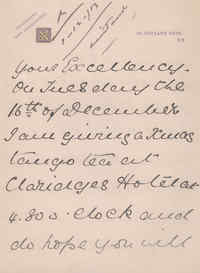 Your Excellency.
On Tuesday the
16th of December
I am giving a Xmas
tango tea at
Claridges Hotel at
4.30 o'clock and
do hope you will